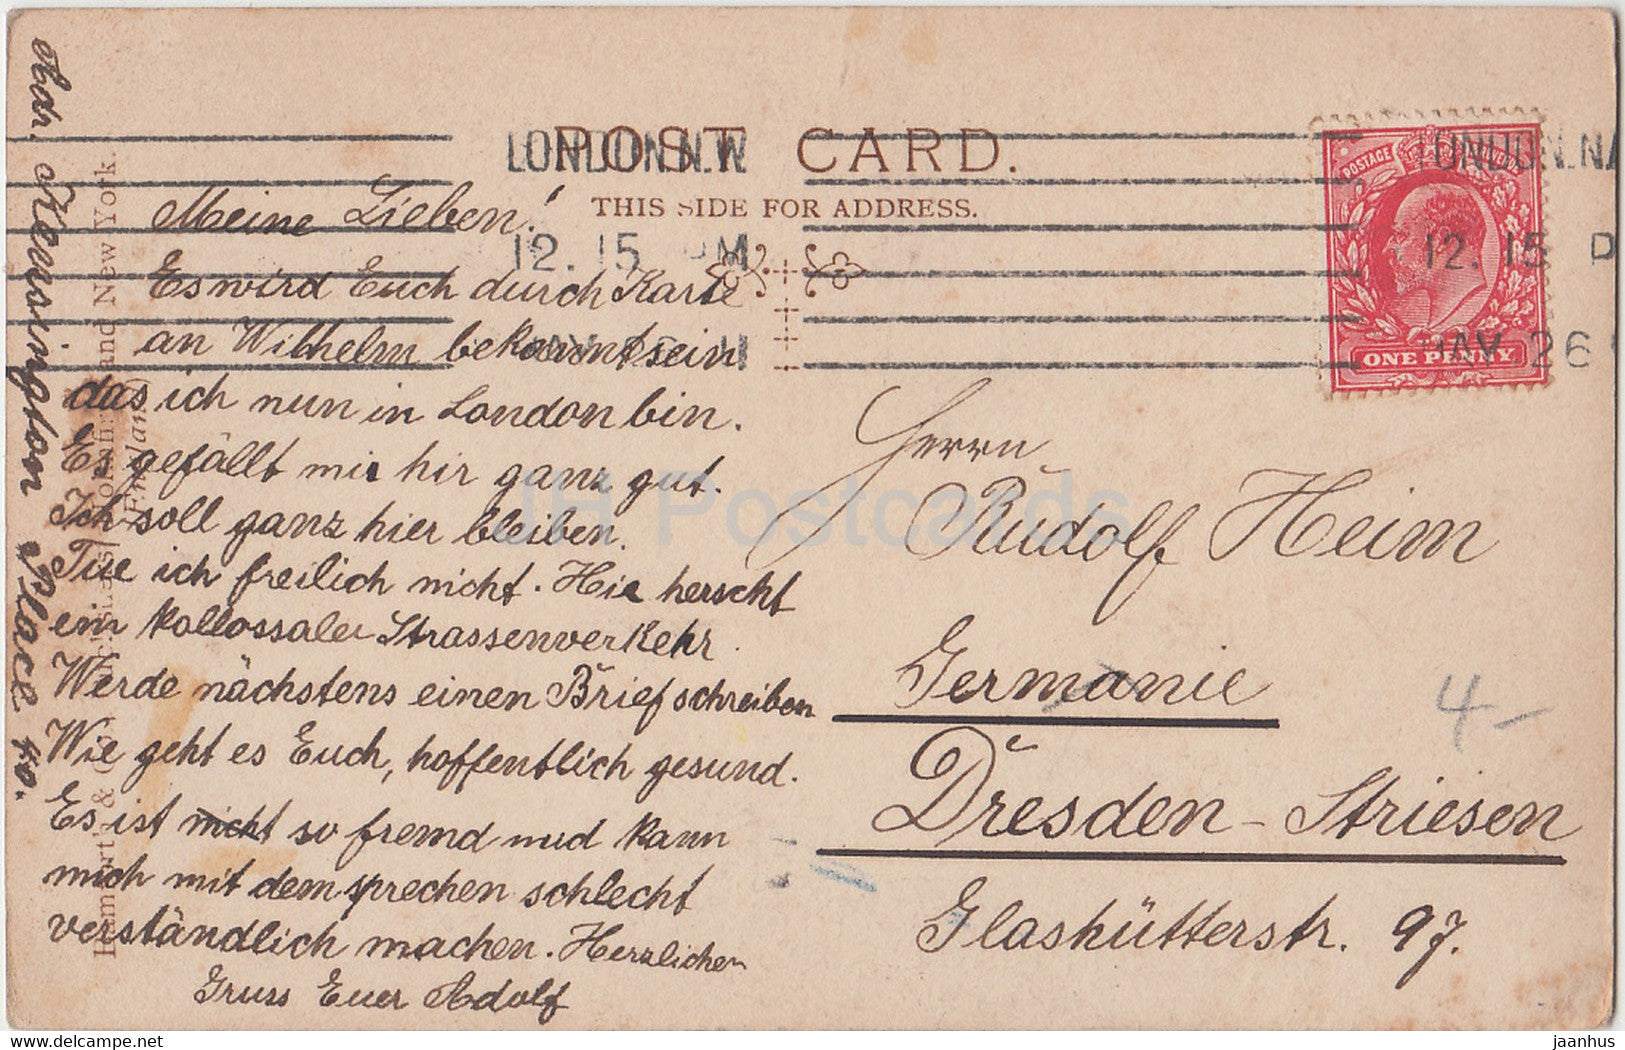 POST CARD.
THIS SIDE FOR ADDRESS.
LONDON.N.W
12.15 PM
LONDON.N
12.15 P
MAY 26
POSTAGE
ONE PENNY
Meine Lieben!
Es wird Euch durch Karte
an Wilhelm bekannt sein
das ich nun in London bin.
Es gefällt mir hir ganz gut.
Ich soll ganz hier bleiben.
Tue ich freilich nicht. Hie herscht
ein kollossaler Strassenverkehr.
Werde nächstens einen Brief schreiben
Wie geht es Euch, hoffentlich gesund.
Es ist nicht so fremd nud kann
mich mit dem sprechen schlecht
verständlich machen. Herzlichen
Gruss Euer Adolf
Adr. Kensington Place 40.
Herrn
Rudolf Heim
Germanie
Dresden-Striesen
Glashütterstr. 97.
4-
and New York.
(England)
JH Postcards
delcampe.net
jaanhus